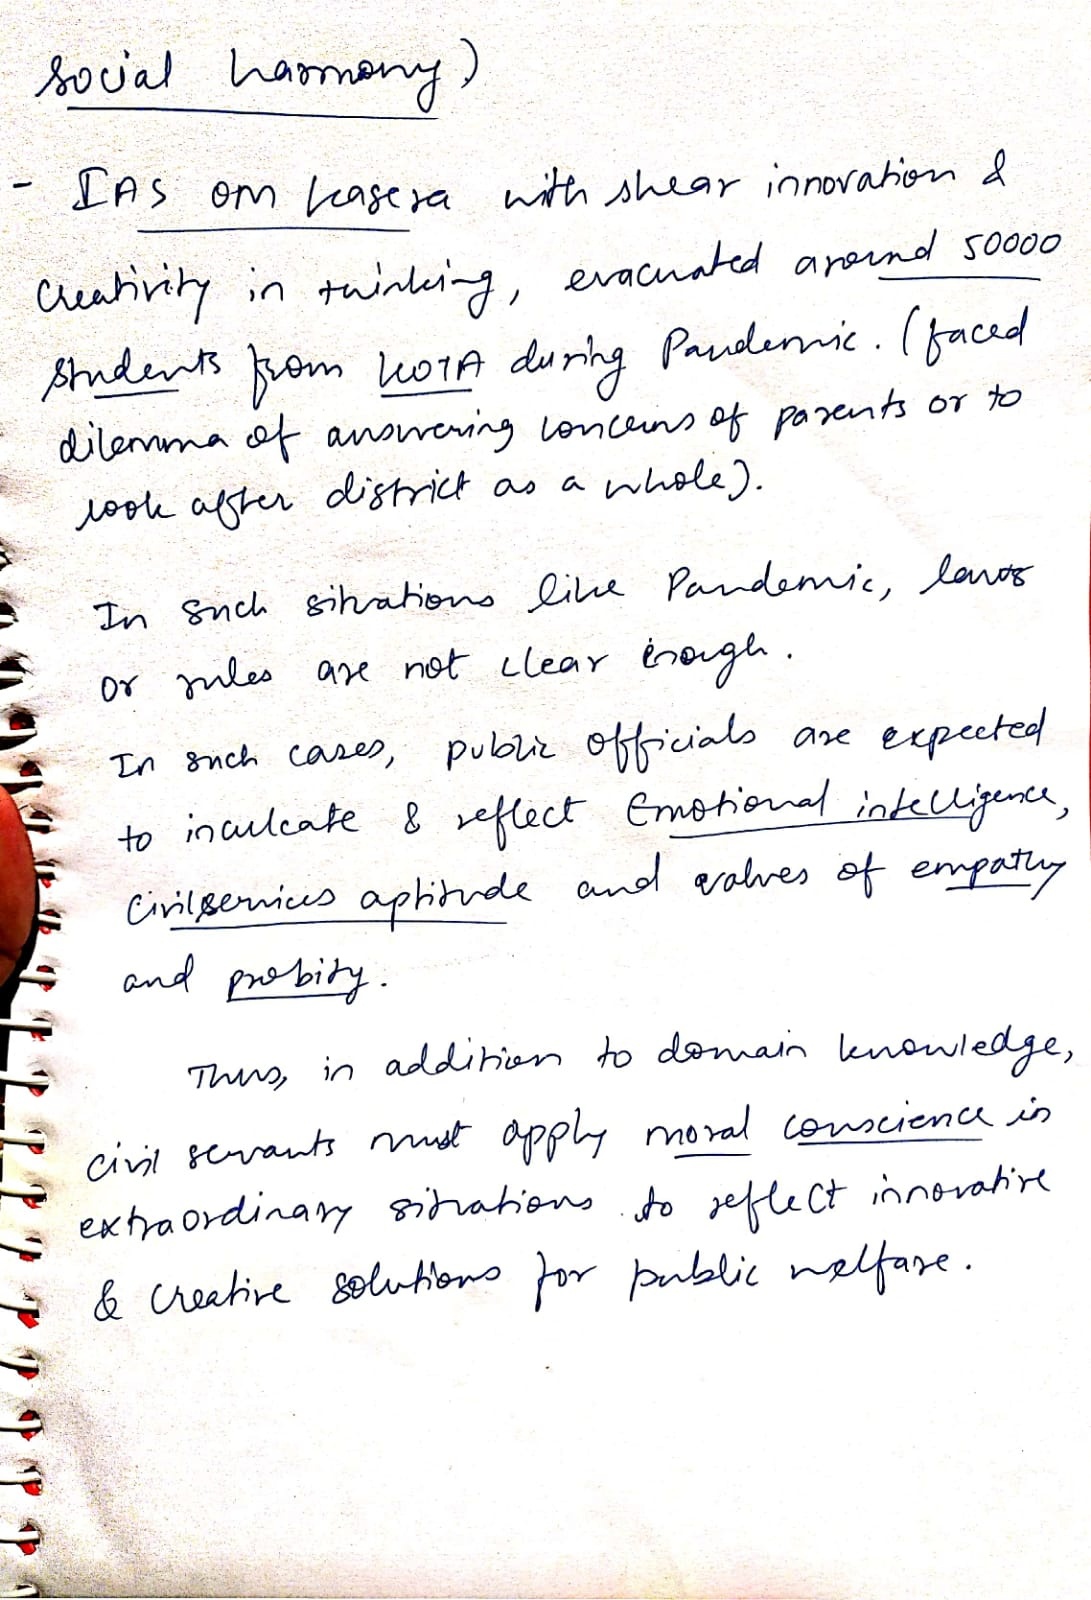 social harmony)
- IAS OM Kasera with shear innovation &
Creativity in thinking, evacuated around 50000
students from KOTA during Pandemic. (faced
dilemma of answering concerns of parents or to
look after district as a whole).
In such situations like Pandemic, laws
or rules are not clear enough.
In such cases, public officials are expected
to inculcate & reflect Emotional intelligence,
Civilservices aptitude and values of empathy
and probity.
Thus, in addition to domain knowledge,
civil servants must apply moral conscience in
extraordinary situations to reflect innovative
& Creative solutions for public welfare.